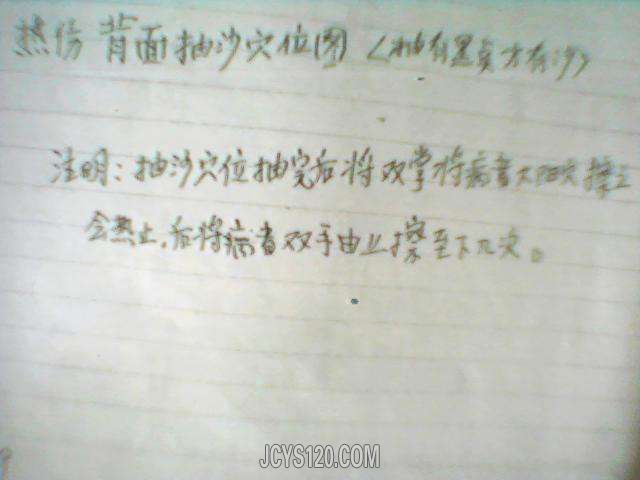 热伤 背面抽沙穴位图 (抽有黑点方有沙)
注明: 抽沙穴位抽完后将双掌将病者太阳穴擦至
会热止,后将病者双手由上擦至下几次。
JCYS120.COM